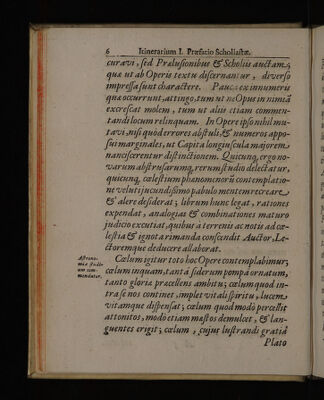 6 Itinerarium I. Præfatio Scholiastæ.
curavi, sed Prælusionibus & Scholiis auctam;
quæ ut ab Operis textu discernantur, diverso
impressa sunt charactere. Pauca ex innumeris
quæ occurrunt, attingo, tum ut ne Opus in nimiā
excrescat molem, tum ut aliis etiam commen-
tandi locum relinquam. In Opere ipso nihil mu-
tavi, nisi quòd errores abstuli, & numeros appo-
sui marginales, ut Capita longiuscula majorem
nanciscerentur distinctionem. Quicunq, ergo no-
varum abstrusarumq, rerum studio delectatur,
quicunq, cælestium phænomenorū contemplatio-
ne veluti jucundissimo pabulo mentem recreare
& alere desiderat; librum hunc legat, rationes
expendat, analogias & combinationes maturo
judicio excutiat, quibus à terrenis ac notis ad cæ-
lestia & ignota rimanda conscendit Auctor, Le-
ctoremque deducere allaborat.
Astrono-
miæ studi-
um com-
mendatur.
Cælum igitur toto hoc Opere contemplabimur;
cælum inquam, tantâ siderum pompâ ornatum,
tanto gloriæ præcellens ambitu; cælum quod in-
tra se nos continet, implet vitali spiritu, lucem
vitamque dispensat; cælum quod modò percellit
attonitos, modò etiam mæstos demulcet, & lan-
guentes erigit; cælum, cujus lustrandi gratiâ
Plato